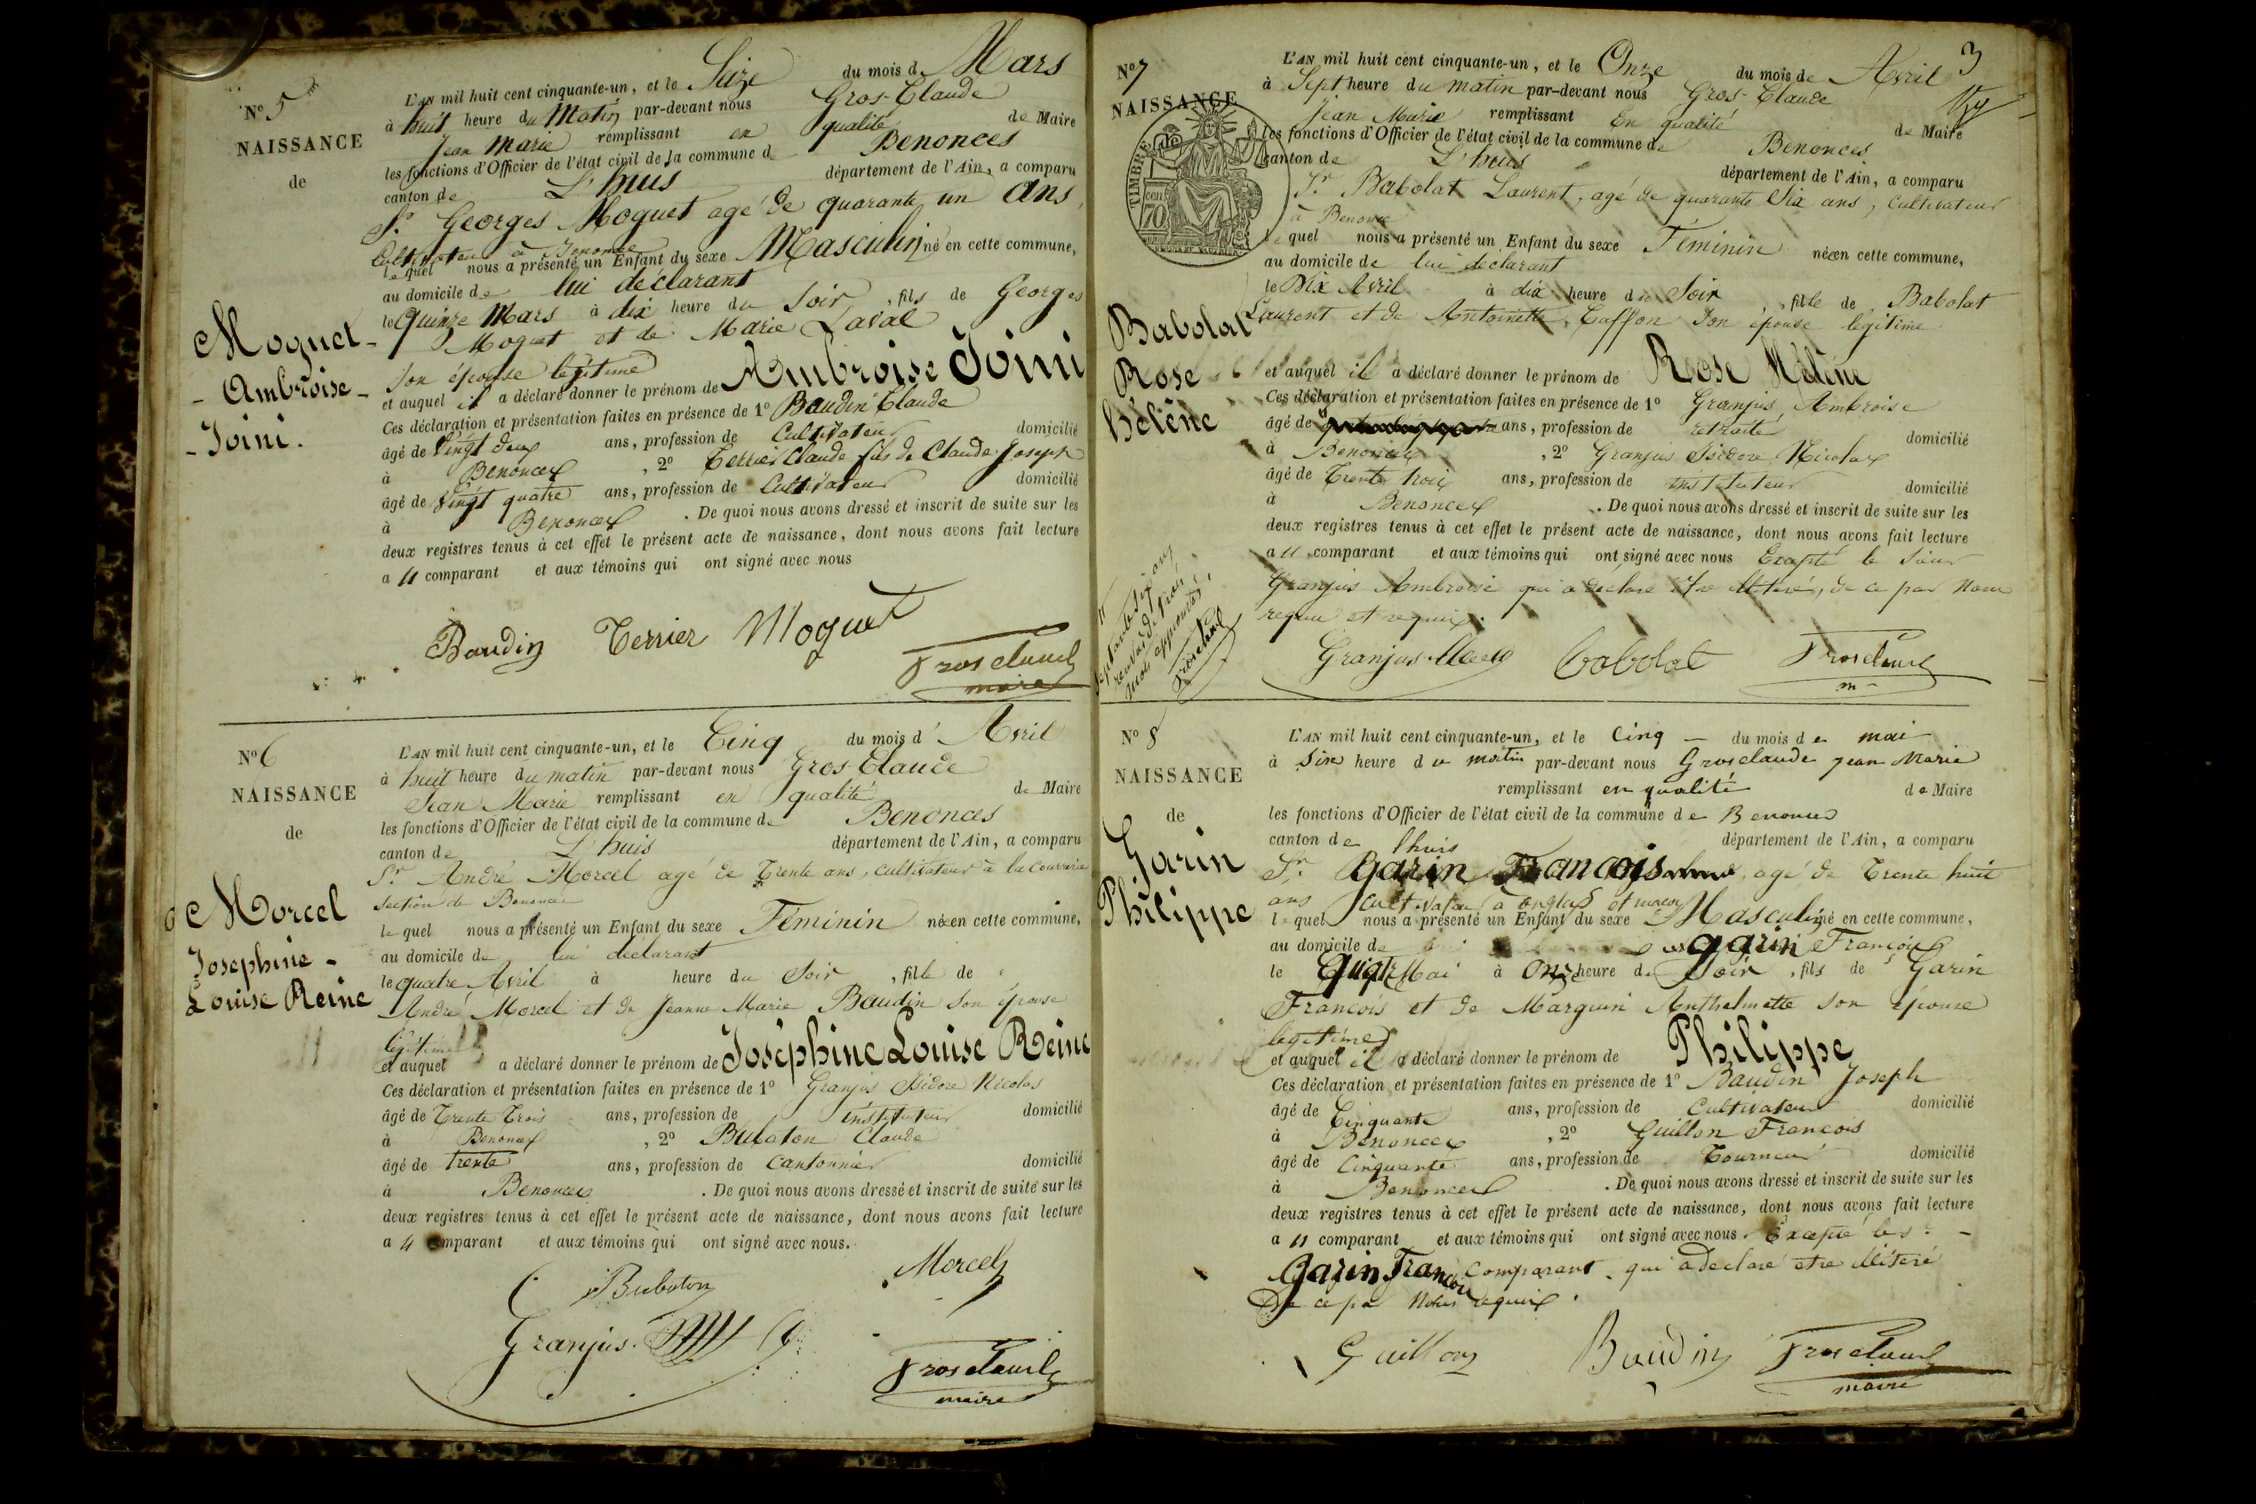 N° 5
NAISSANCE
de
Moguet
Ambroise
Joini.
L'AN mil huit cent cinquante-un, et le Seize du mois de Mars
à huit heure du Matin par-devant nous Gros-Claude
Jean Marie remplissant en qualité de Maire
les fonctions d'Officier de l'état civil de la commune de Benonces
canton de L'huis département de l'Ain, a comparu
Sr. Georges Moguet agé de quarante un ans,
Cultivateur à Benonce
lequel nous a présenté un Enfant du sexe Masculin né en cette commune,
au domicile de lui déclarant
le Quinze Mars à dix heure du Soir, fils de Georges
Moguet et de Marie Laval
son épouse légitime
et auquel il a déclaré donner le prénom de Ambroise Joini
Ces déclaration et présentation faites en présence de 1° Baudin Claude
âgé de vingt deux ans, profession de Cultivateur domicilié
à Benonces, 2° Terrier Claude fils de Claude Joseph
âgé de Vingt quatre ans, profession de Cultivateur domicilié
à Benonces. De quoi nous avons dressé et inscrit de suite sur les
deux registres tenus à cet effet le présent acte de naissance, dont nous avons fait lecture
a u comparant et aux témoins qui ont signé avec nous
Baudin Terrier Moguet
Grosclaude
maire
N° 6
NAISSANCE
de
6 Morcel
Josephine
Louise Reine
L'AN mil huit cent cinquante-un, et le Cinq du mois d' Avril
à huit heure du matin par-devant nous Gros-Claude
Jean Marie remplissant en qualité de Maire
les fonctions d'Officier de l'état civil de la commune de Benonces
canton de L'huis département de l'Ain, a comparu
Sr André Morcel agé de Trente ans, cultivateur à la Courrerie
Section de Benonces
lequel nous a présenté un Enfant du sexe Féminin née en cette commune,
au domicile de lui déclarant
le quatre Avril à heure du Soir, fille de
André Morcel et de Jeanne Marie Baudin Son épouse
légitime
et auquel a déclaré donner le prénom de Joséphine Louise Reine
Ces déclaration et présentation faites en présence de 1° Granjus Isidore Nicolas
âgé de Trente Trois ans, profession de instituteur domicilié
à Benonces, 2° Buloton Claude
âgé de trente ans, profession de cantonnier domicilié
à Benonces. De quoi nous avons dressé et inscrit de suite sur les
deux registres tenus à cet effet le présent acte de naissance, dont nous avons fait lecture
a u comparant et aux témoins qui ont signé avec nous.
Buloton Morcel
Granjus
Grosclaude
maire
3
N° 7
NAISSANCE
TIMBRE
70
Babolat
Rose
Hélène
L'AN mil huit cent cinquante-un, et le Onze du mois de Avril
à Sept heure du matin par-devant nous Gros-Claude
Jean Marie remplissant en qualité de Maire
les fonctions d'Officier de l'état civil de la commune de Benonces
canton de L'huis département de l'Ain, a comparu
Sr Babolat Laurent, agé de quarante Six ans, cultivateur
à Benonce
lequel nous a présenté un Enfant du sexe Féminin née en cette commune,
au domicile de lui déclarant
le Dix Avril à dix heure du Soir, fille de Babolat
Laurent et de Antoinette Caffon Son épouse légitime
et auquel il a déclaré donner le prénom de Rose Hélène
Ces déclaration et présentation faites en présence de 1° Granjus, Ambroise
âgé de ans, profession de retraité domicilié
à Benonces, 2° Granjus Isidore Nicolas
âgé de Trente trois ans, profession de instituteur domicilié
à Benonces. De quoi nous avons dressé et inscrit de suite sur les
deux registres tenus à cet effet le présent acte de naissance, dont nous avons fait lecture
a u comparant et aux témoins qui ont signé avec nous Excepté le Sieur
Granjus Ambroise qui a déclaré être illitéré, de ce par Nous
requi et requis.
Granjus Babolat Grosclaude
m
Grosclaude
N° 8
NAISSANCE
de
Garin
Philippe
L'AN mil huit cent cinquante-un, et le Cinq du mois de mai
à Six heure du matin par-devant nous Grosclaude jean Marie
remplissant en qualité de Maire
les fonctions d'Officier de l'état civil de la commune de Benonces
canton de lhuis département de l'Ain, a comparu
Sr. Garin François agé de Trente huit
ans Cultivateur à
lequel nous a présenté un Enfant du sexe Masculin né en cette commune,
au domicile de garin François
le Quatre Mai à Onze heure du Soir, fils de Garin
François et de Marguin Anthelmette Son épouse
legitime
et auquel il a déclaré donner le prénom de Philippe
Ces déclaration et présentation faites en présence de 1° Baudin Joseph
âgé de Cinquante ans, profession de Cultivateur domicilié
à Benonces, 2° Guillon François
âgé de Cinquante ans, profession de Tourneur domicilié
à Benonces. De quoi nous avons dressé et inscrit de suite sur les
deux registres tenus à cet effet le présent acte de naissance, dont nous avons fait lecture
a u comparant et aux témoins qui ont signé avec nous. Excepté les
Garin François Comparant qui a declaré etre illiteré
De ce par Nous requis.
Guillon Baudin Grosclaude
maire